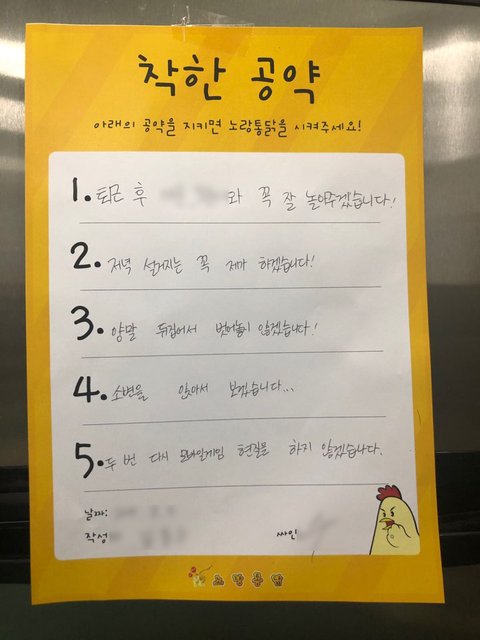 착한 공약
아래의 공약을 지키면 노랑통닭을 시켜주세요!
1. 퇴근 후 와 꼭 잘 놀아주겠습니다!
2. 저녁 설거지는 꼭 제가 하겠습니다!
3. 양말 뒤집어서 벗어놓지 않겠습니다!
4. 소변을 앉아서 보겠습니다...
5. 두 번 다시 모바일게임 현질을 하지 않겠습니다.
날짜:
작성 싸인
노랑통닭